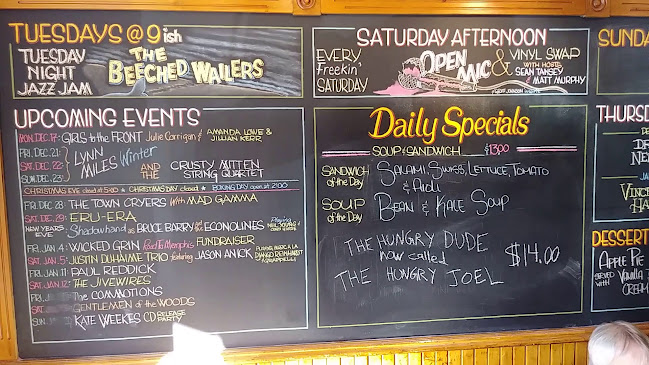 TUESDAYS @ 9 ish
TUESDAY
NIGHT
JAZZ JAM
THE
BEECHED WAILERS
UPCOMING EVENTS
MON. DEC. 17- GIRLS to the FRONT Julie Corrigan & AMANDA LOWE & JILLIAN KERR
FRI. DEC. 21
SAT. DEC. 22
SUN. DEC. 23
LYNN MILES Winter AND THE CRUSTY MITTEN STRING QUARTET
CHRISTMAS EVE closed at * CHRISTMAS DAY closed * BOXING DAY open at 2:00
FRI. DEC. 28- THE TOWN CRYERS WITH MAD GAMMA
SAT. DEC. 29- ERU-ERA
NEW YEARS EVE Shadowhand as BRUCE BARRY and the ECONOLINES Playing
FRI. JAN. 4- WICKED GRIN Road To Memphis FUNDRAISER
SAT. JAN. 5- JUSTIN DUHAIME TRIO featuring JASON ANICK DJANGO REINHARDT
FRI. JAN. 11- PAUL REDDICK
SAT. JAN. 12- THE JIVEWIRES
FRI. The COMMOTIONS
SAT. GENTLEMEN of the WOODS
SUN. KATE WEEKES CD RELEASE PARTY
SATURDAY AFTERNOON
EVERY
freekin'
SATURDAY
OPEN MIC
& VINYL SWAP
WITH HOSTS
SEAN TANSEY
& MATT MURPHY
Daily Specials
SOUP & SANDWICH $13.00
SANDWICH of the Day SALAMI, SWISS, LETTUCE, TOMATO & AIOLI
SOUP of the Day BEAN & KALE SOUP
THE HUNGRY DUDE
now called
THE HUNGRY JOEL
$14.00
SUNDA
THURSD
DESSERT
APPLE PIE
SERVED WITH VANILLA
CREAM